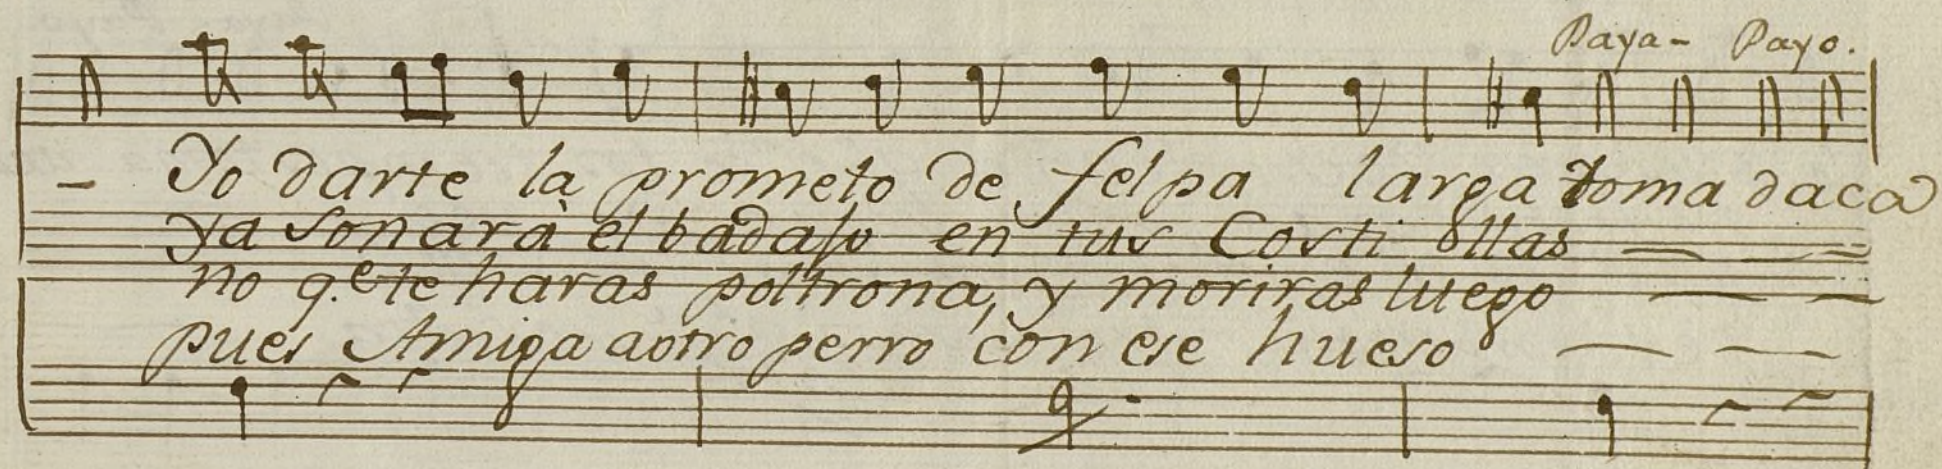 Paya- Payo.
- Yo darte la prometo de felpa larga toma daca
ya sonarà el badajo en tus Costi ollas
no q.e te haras poltrona, y moriras luego
pues Amiga aotro perro con ese hueso